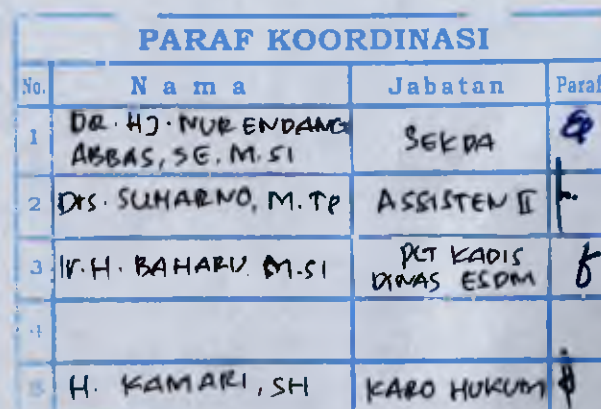 PARAF KOORDINASI
No. Nama Jabatan Paraf
1 DR. HJ. NUR ENDANG ABBAS, SE. M.SI SEKDA
2 Drs. SUHARNO, M.TP ASSISTEN II
3 Ir. H. BAHARU M.SI PLT KADIS DINAS ESDM
4
5 H. KAMARI, SH KARO HUKUM